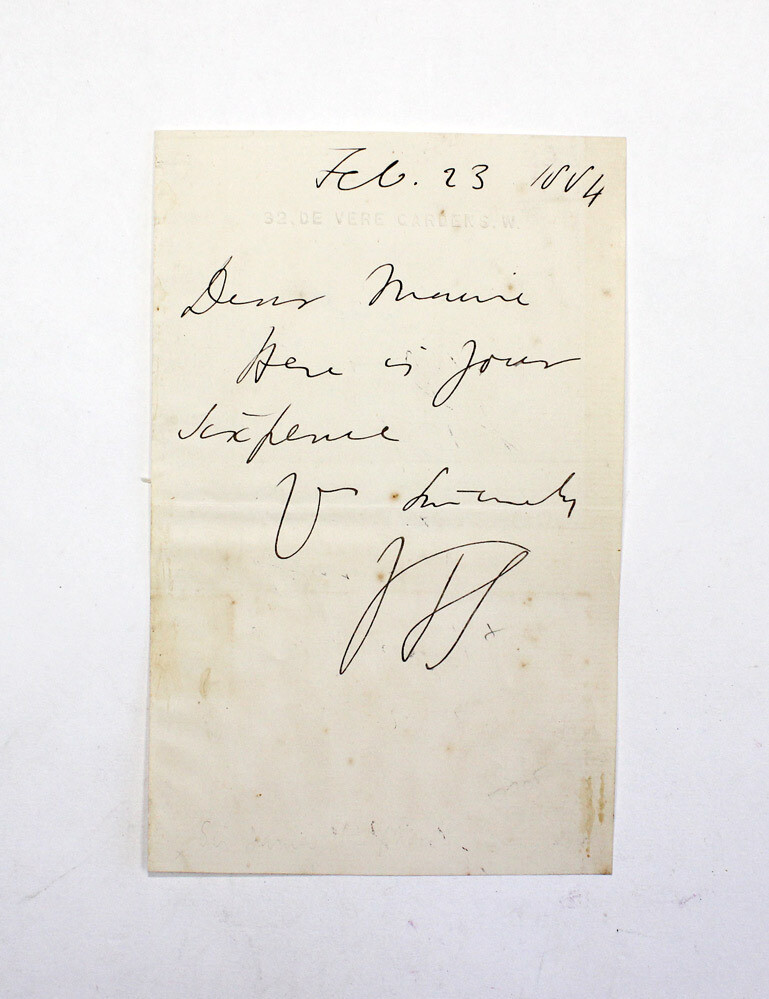 Feb. 23 1884
32, DE VERE GARDENS. W.
Dear Maurie
Here is your
sixpence
Yr Sincerely
JFS